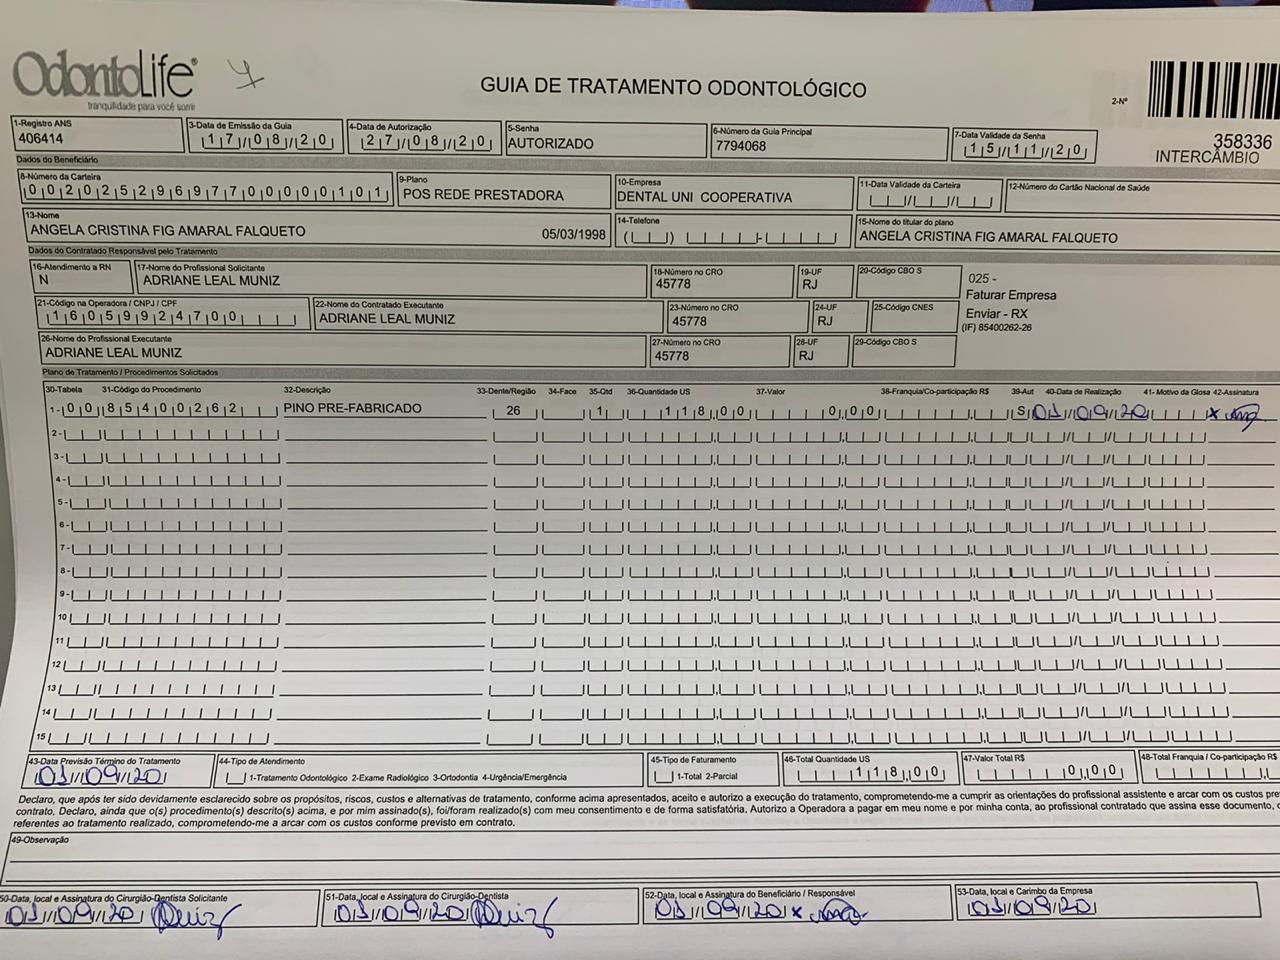 OdontoLife®
tranquilidade para você sorrir
GUIA DE TRATAMENTO ODONTOLÓGICO
2-Nº
358336
INTERCÂMBIO
1-Registro ANS
406414
3-Data de Emissão da Guia
17/08/20
4-Data de Autorização
27/08/20
5-Senha
AUTORIZADO
6-Número da Guia Principal
7794068
7-Data Validade da Senha
15/11/20
Dados do Beneficiário
8-Número da Carteira
00202529697700000101
9-Plano
POS REDE PRESTADORA
10-Empresa
DENTAL UNI COOPERATIVA
11-Data Validade da Carteira
12-Número do Cartão Nacional de Saúde
13-Nome
ANGELA CRISTINA FIG AMARAL FALQUETO 05/03/1998
14-Telefone
15-Nome do titular do plano
ANGELA CRISTINA FIG AMARAL FALQUETO
Dados do Contratado Responsável pelo Tratamento
16-Atendimento a RN
N
17-Nome do Profissional Solicitante
ADRIANE LEAL MUNIZ
18-Número no CRO
45778
19-UF
RJ
20-Código CBO S
025 -
Faturar Empresa
Enviar - RX
(IF) 85400262-26
21-Código na Operadora / CNPJ / CPF
16059924700
22-Nome do Contratado Executante
ADRIANE LEAL MUNIZ
23-Número no CRO
45778
24-UF
RJ
25-Código CNES
26-Nome do Profissional Executante
ADRIANE LEAL MUNIZ
27-Número no CRO
45778
28-UF
RJ
29-Código CBO S
Plano de Tratamento / Procedimentos Solicitados
30-Tabela 31-Código do Procedimento 32-Descrição 33-Dente/Região 34-Face 35-Qtd 36-Quantidade US 37-Valor 38-Franquia/Co-participação R$ 39-Aut 40-Data de Realização 41- Motivo da Glosa 42-Assinatura
1- 00 85400262 PINO PRE-FABRICADO 26 1 118,00 0,00 S 01/09/20 x
2-
3-
4-
5-
6-
7-
8-
9-
10
11
12
13
14
15
43-Data Previsão Término do Tratamento
01/09/20
44-Tipo de Atendimento
1-Tratamento Odontológico 2-Exame Radiológico 3-Ortodontia 4-Urgência/Emergência
45-Tipo de Faturamento
1-Total 2-Parcial
46-Total Quantidade US
118,00
47-Valor Total R$
0,00
48-Total Franquia / Co-participação R$
Declaro, que após ter sido devidamente esclarecido sobre os propósitos, riscos, custos e alternativas de tratamento, conforme acima apresentados, aceito e autorizo a execução do tratamento, comprometendo-me a cumprir as orientações do profissional assistente e arcar com os custos pre
contrato. Declaro, ainda que o(s) procedimento(s) descrito(s) acima, e por mim assinado(s), foi/foram realizado(s) com meu consentimento e de forma satisfatória. Autorizo a Operadora a pagar em meu nome e por minha conta, ao profissional contratado que assina esse documento,
referentes ao tratamento realizado, comprometendo-me a arcar com os custos conforme previsto em contrato.
49-Observação
50-Data, local e Assinatura do Cirurgião-Dentista Solicitante
01/09/20
51-Data, local e Assinatura do Cirurgião-Dentista
01/09/20
52-Data, local e Assinatura do Beneficiário / Responsável
01/09/20 x
53-Data, local e Carimbo da Empresa
01/09/20